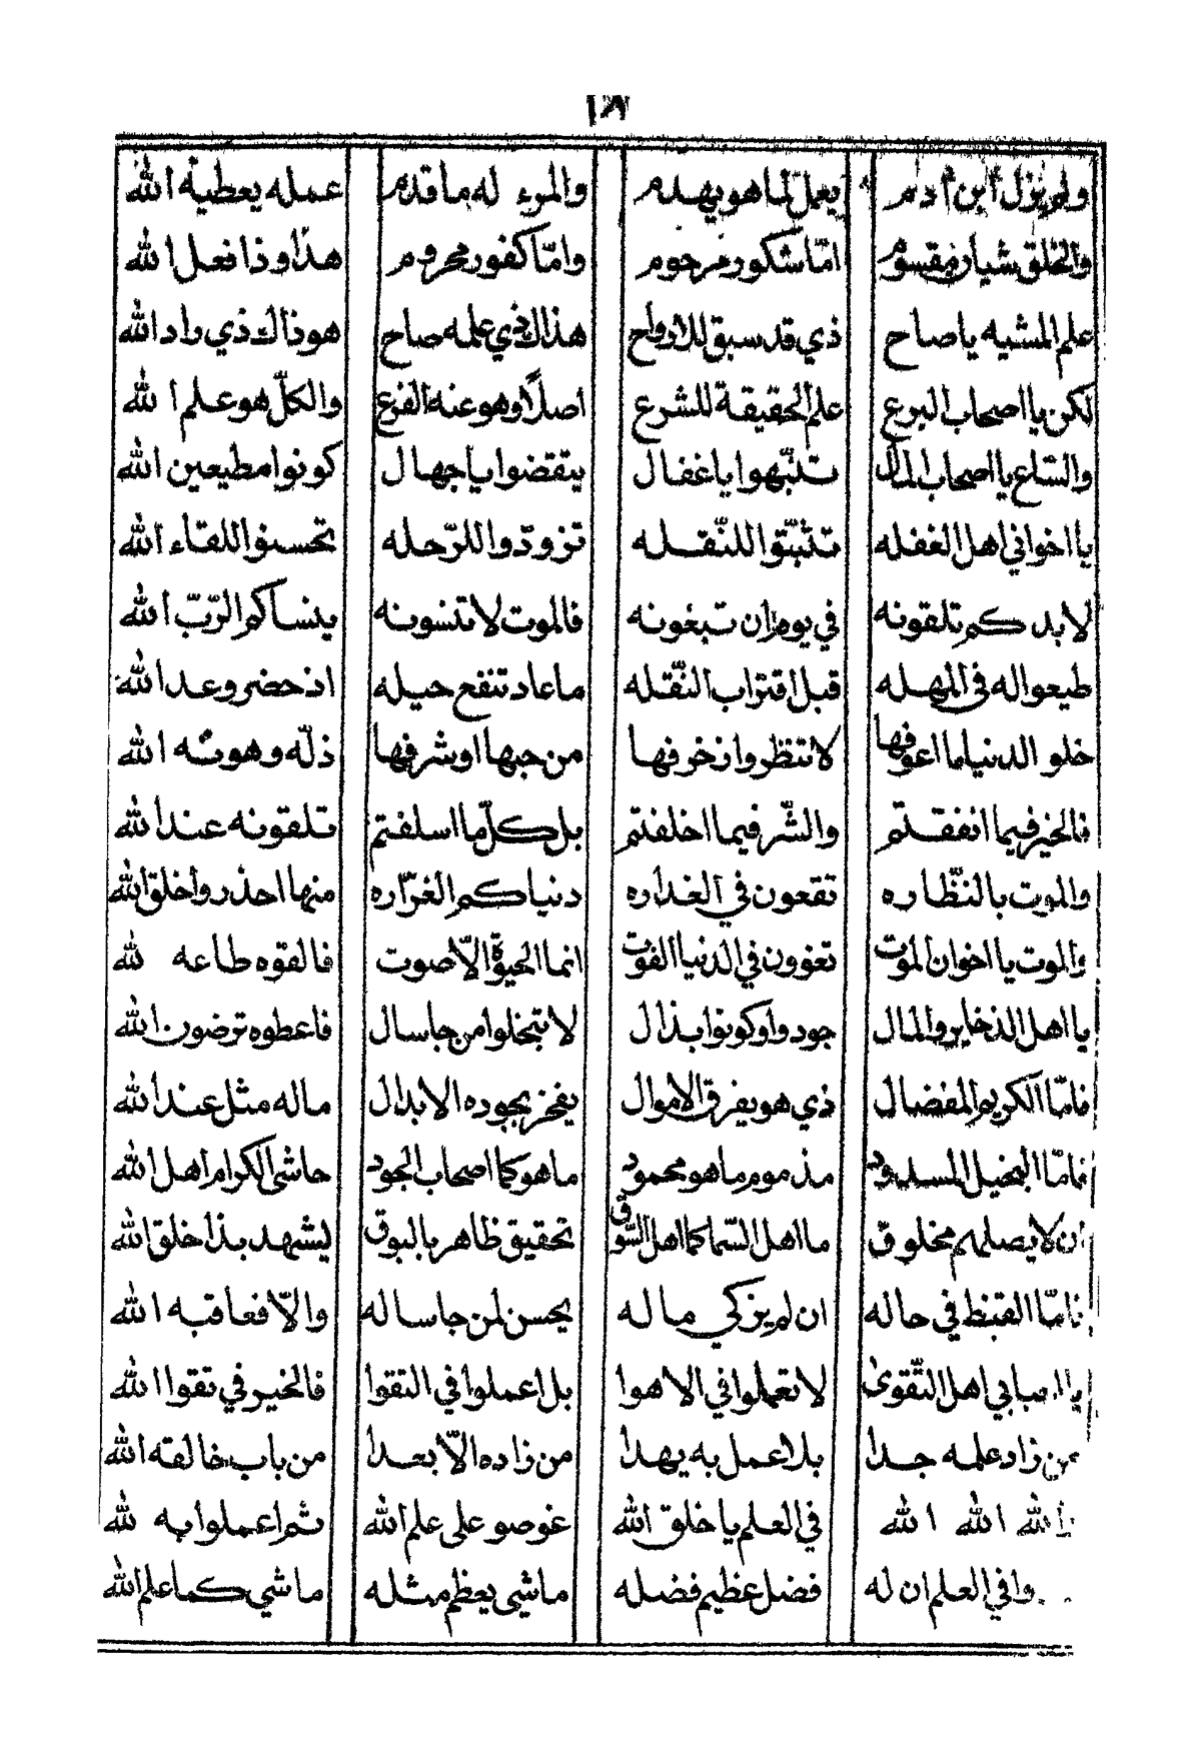 ١٨١
ولم يزل ابن آدم يعمل لما هو يهدم والمرء له ما قدم عمله يعطيه الله
والخلق شيان مقسوم امّا شكور مرحوم وامّا كفور محروم هذا وذا فعل الله
علم المشيه يا صاح ذي قد سبق للارواح هذاك ذي علمه صاح هو ذاك ذي راد الله
لكن يا اصحاب البرع علم الحقيقة للشرع اصلاً وهو عنه الفرع والكلّ هو علم الله
والسّاع يا اصحاب المال تنبّهوا يا غفال يتقضوا يا جهال كونوا مطيعين الله
يا اخواني اهل الغفله تثبّتوا للنّقله تزودّوا للرّحله تحسنوا للقاء الله
لابدكم تلقونه في يوم ان تبغونه فالموت لا تنسونه ينساكم الرّبّ الله
طيعوا له في المهله قبل اقتراب النّقله ما عاد تنفع حيله اذ حضر وعد الله
خلو الدنيا ما اعوفها لا تنظروا زخرفها من حبها او شرفها ذلّه وهونه الله
فالخير فيما انفقتم والشّر فيما اخلفتم بل كلّ ما اسلفتم تلقونه عند الله
والموت بالنّظاره تقعون في الغداره دنياكم الغرّاره منها احذروا خلق الله
والموت يا اخوان الموت تغوون في الدنيا الفوت انما الحيوة الّا صوت فالقوه طاعه لله
يا اهل الذخاير والمال جودوا وكونوا بذال لا تبخلوا من جا سال فاعطوه ترضون الله
فامّا الكريم المفضال ذي هو يفرق الاموال يفخر بجوده الابدال ماله مثل عند الله
فامّا البخيل المسدود مذموم ما هو محمود ما هو كما اصحاب الجود حاشى الكرام اهل الله
ان لا يصلهم مخلوق ما اهل السّما كما اهل السّوق تحقيق ظاهر بالبوق ليشهد بذا خلق الله
فامّا القبظ في حاله ان لم يزكي ماله يحسن لمن جا ساله والّا فعاقبه الله
اهل التّقوى لا تعملوا في الاهوا بل اعملوا في التقوا فالخير في تقوا الله
من زاد علمه جدا بلا عمل به يهدا من زاده الّا بعدا من باب خالقه الله
الله الله الله في العلم يا خلق الله غوصو على علم الله ثم اعملوا به لله
العلم ان له فضل عظيم فضله ما شي يعظم مثله ما شي كما علم الله